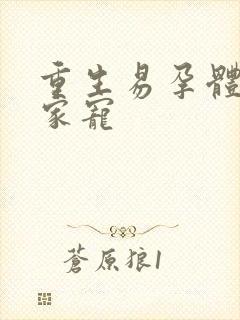 重生易孕體
家寵
蒼原狼1